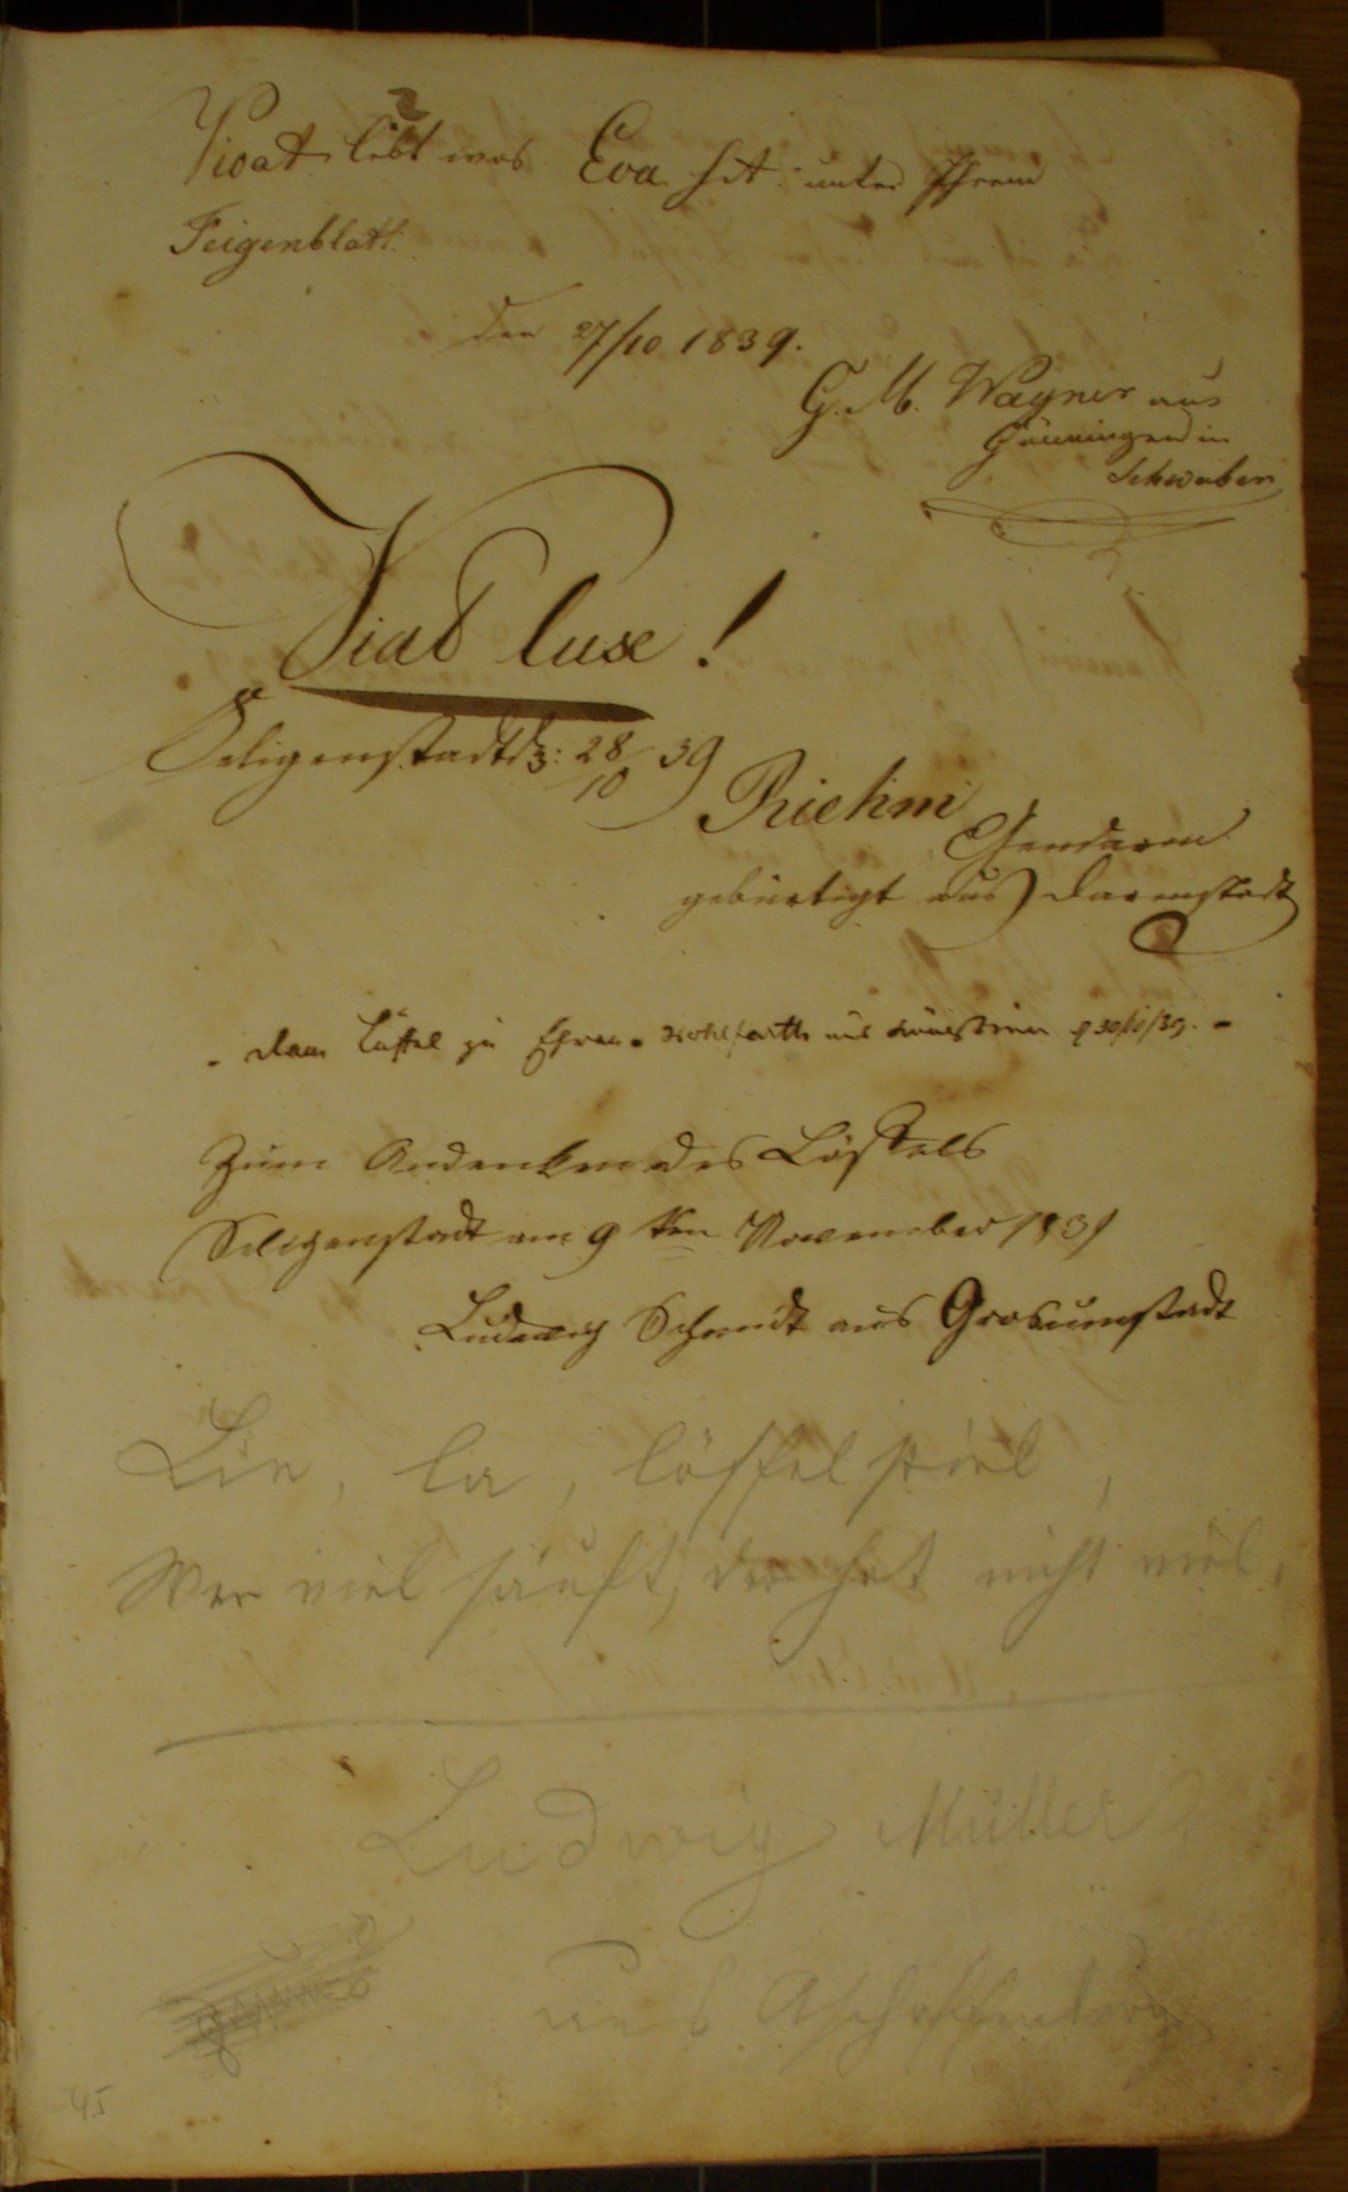 Vivat lebt was Eva hat unter Ihrem
Feigenblatt.
den 27/10 1839.
G. M. Wagner aus
Gönningen in
Schwaben
Fiat luxe!
Seligenstadt 28/10 39
Riehm
Gendarm
gebürtigt aus Darmstadt
- dem Löffel zu Ehren - Wohlfarth aus 30/10/39. -
Zum Andenken des Löffels
Seligenstadt am 9ten November 1839
Ludwig Schmidt aus Grosumstadt
Lir, la, löffelstiel,
Wer viel säuft, der hat nicht viel,
Ludwig Müller
aus Aschaffenburg
45